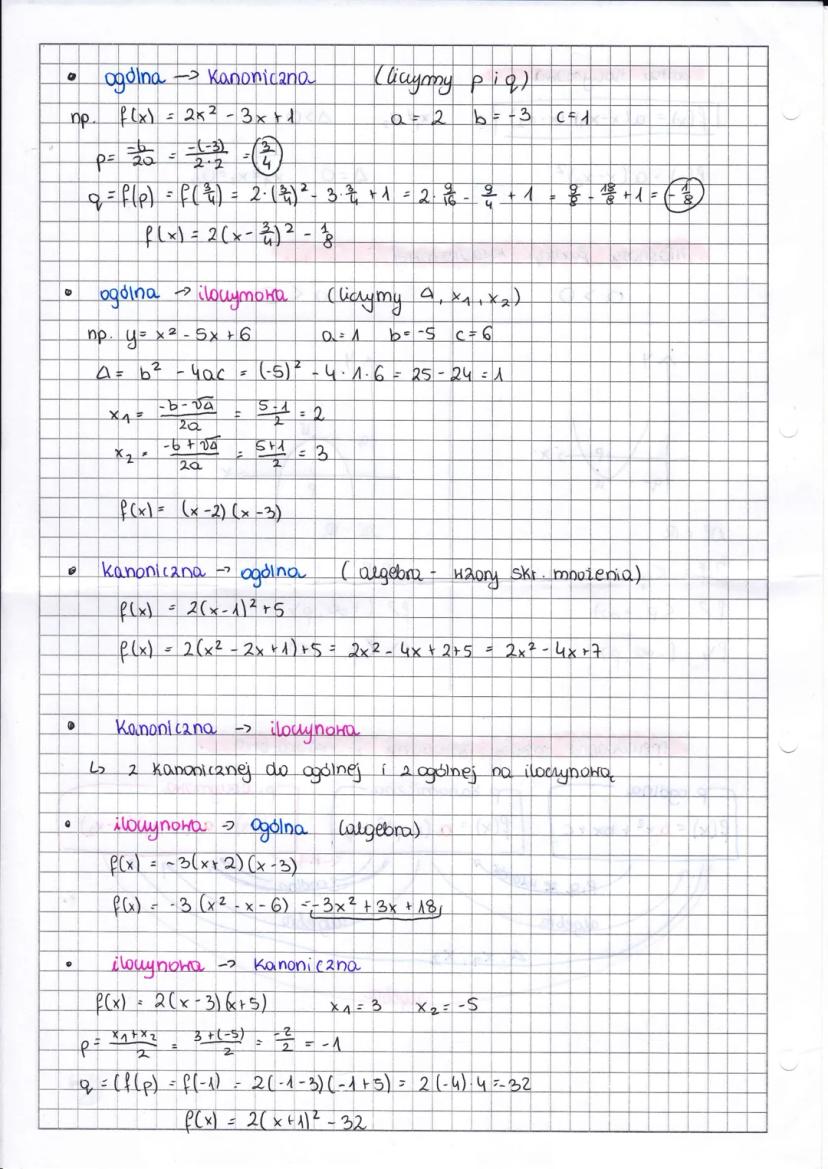 • ogólna → kanoniczna (liczymy p i q)
np. f(x) = 2x² - 3x + 1 a = 2 b = -3 c = 1
p = -b/2a = -(-3)/2·2 = 3/4
q = f(p) = f(3/4) = 2·(3/4)² - 3·3/4 + 1 = 2·9/16 - 9/4 + 1 = 9/8 - 18/8 + 1 = -1/8
f(x) = 2(x - 3/4)² - 1/8
• ogólna → iloczynowa (liczymy Δ, x₁, x₂)
np. y = x² - 5x + 6 a = 1 b = -5 c = 6
Δ = b² - 4ac = (-5)² - 4·1·6 = 25 - 24 = 1
x₁ = -b-√Δ/2a = 5-1/2 = 2
x₂ = -b+√Δ/2a = 5+1/2 = 3
f(x) = (x-2)(x-3)
• kanoniczna → ogólna (algebra - wzory skr. mnożenia)
f(x) = 2(x-1)² + 5
f(x) = 2(x² - 2x + 1) + 5 = 2x² - 4x + 2 + 5 = 2x² - 4x + 7
• kanoniczna → iloczynowa
↳ z kanonicznej do ogólnej i z ogólnej na iloczynową
• iloczynowa → ogólna (algebra)
f(x) = -3(x+2)(x-3)
f(x) = -3(x² - x - 6) = -3x² + 3x + 18
• iloczynowa → kanoniczna
f(x) = 2(x-3)(x+5) x₁ = 3 x₂ = -5
p = x₁+x₂/2 = 3+(-5)/2 = -2/2 = -1
q = (f(p) = f(-1) = 2(-1-3)(-1+5) = 2(-4)·4 = -32
f(x) = 2(x+1)² - 32